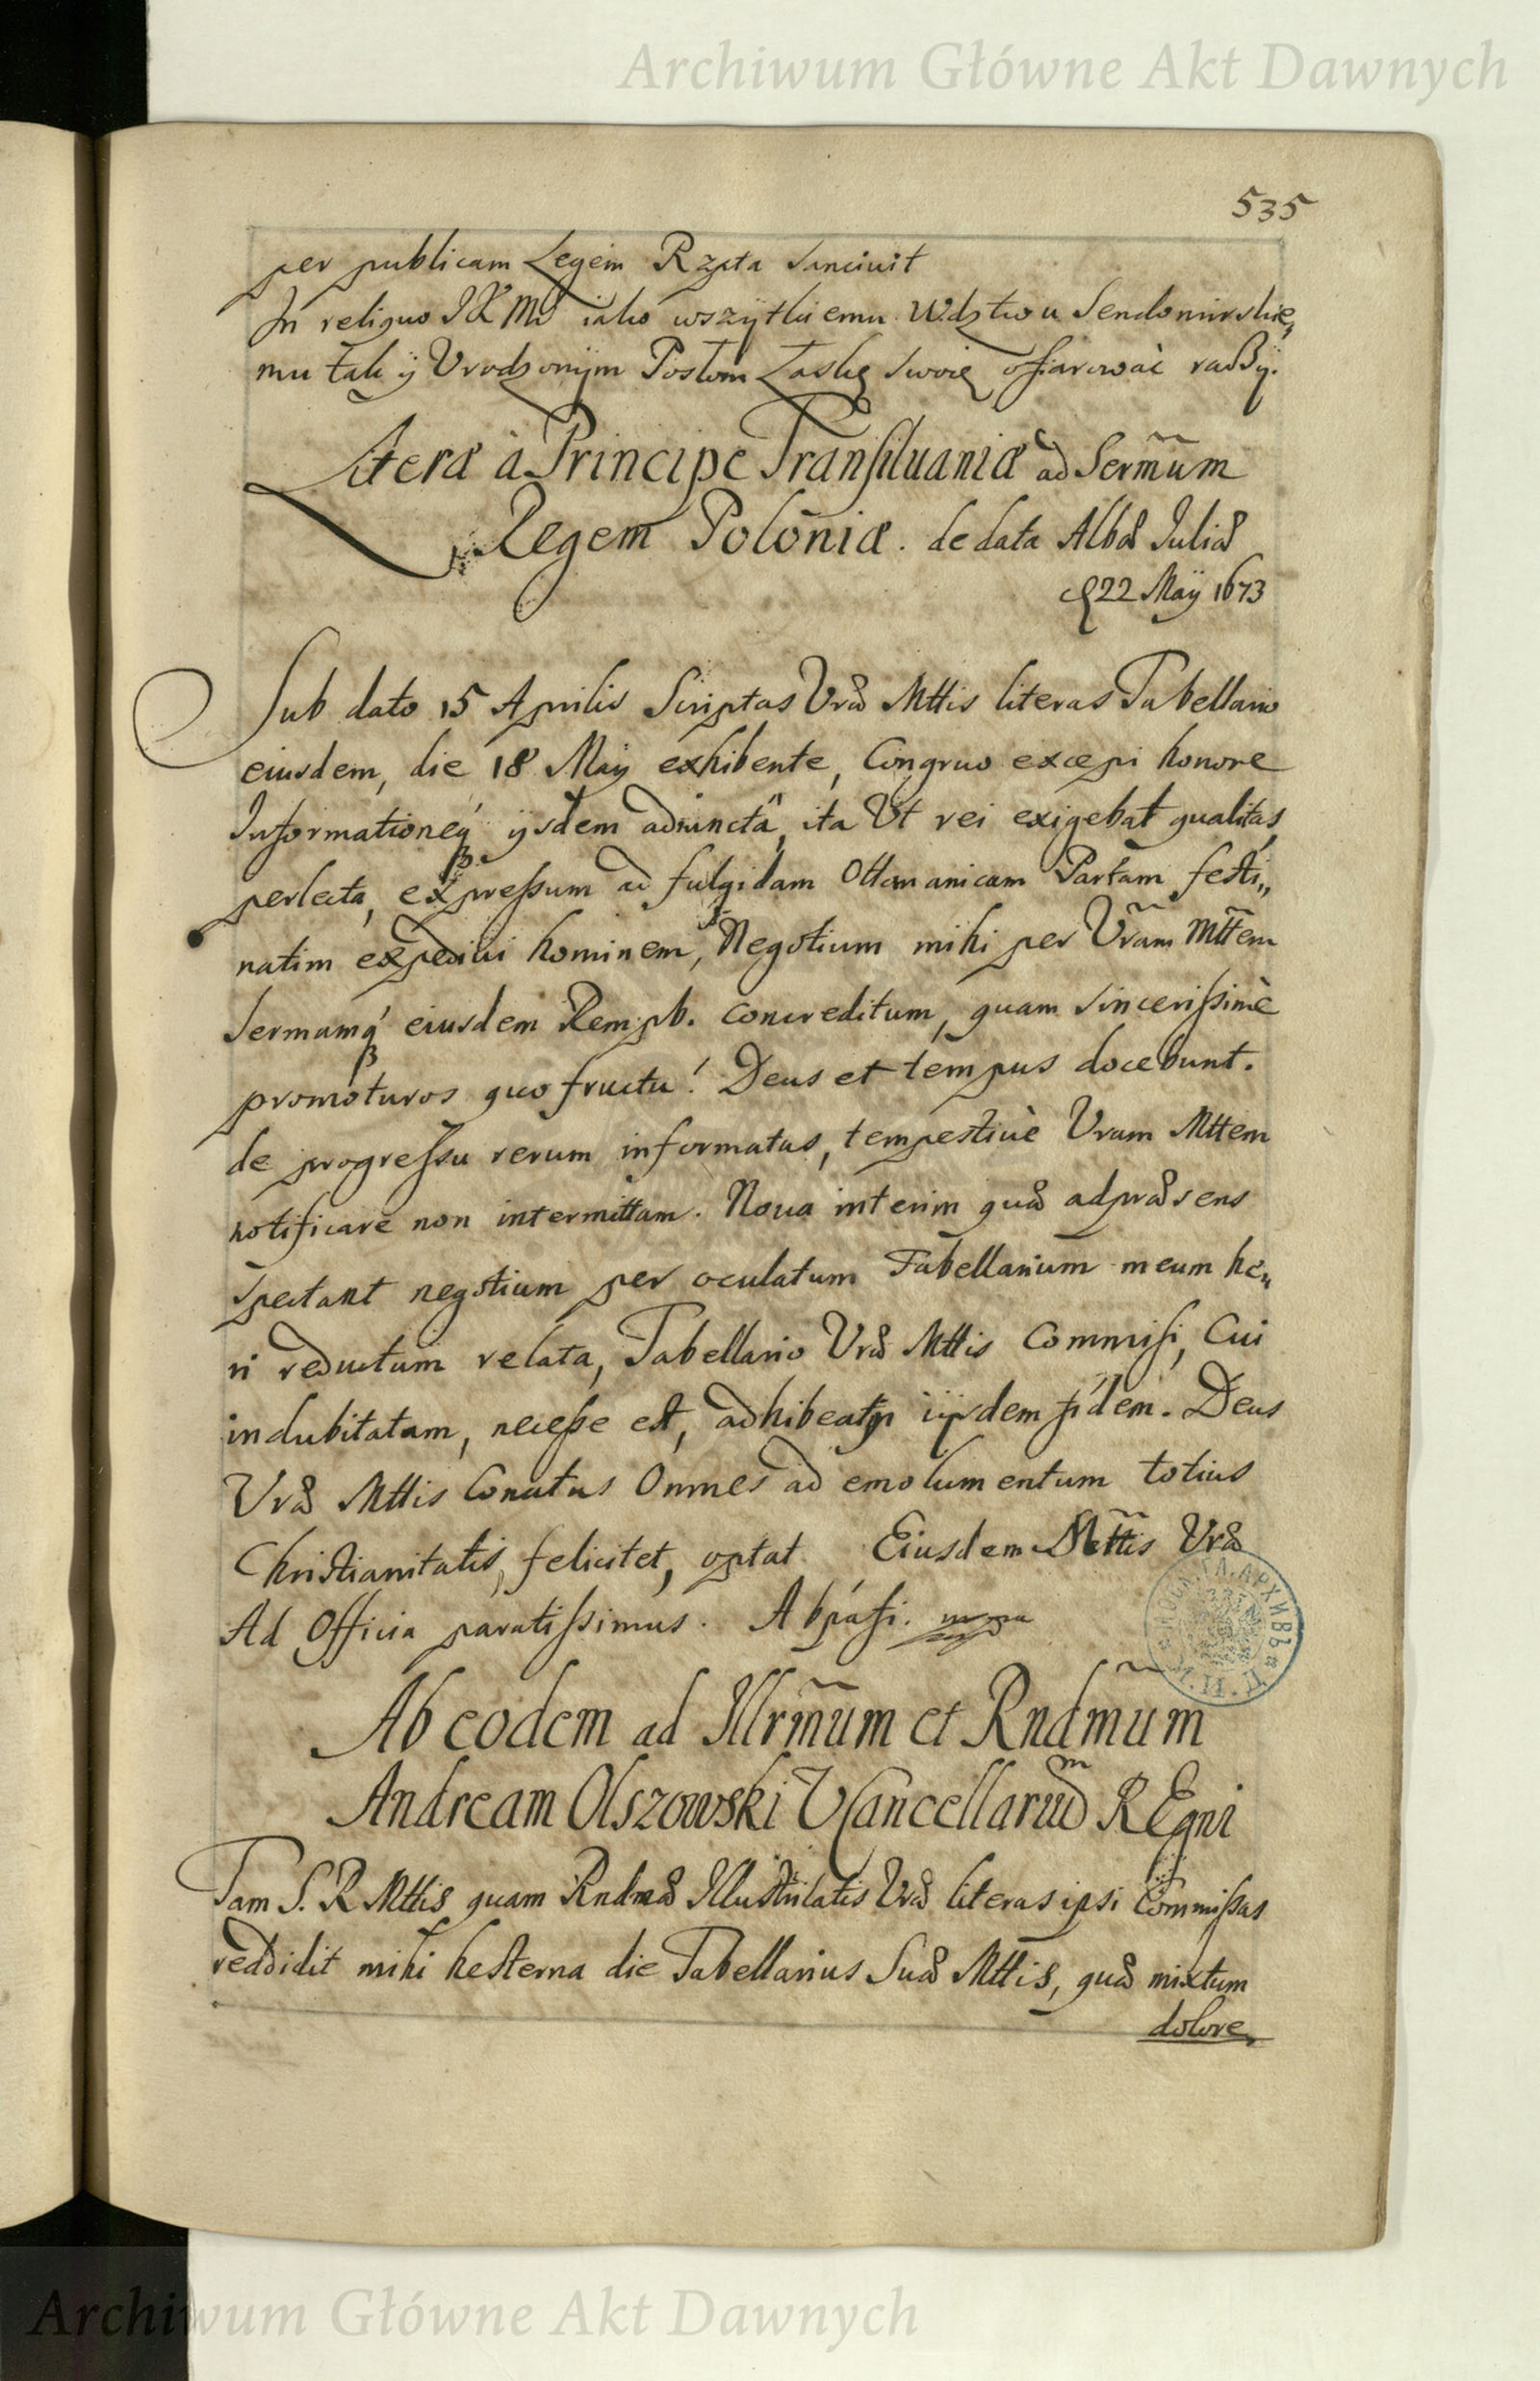 Archiwum Główne Akt Dawnych
535
per publicam Legem Rzpta sanciuit
In reliquo JKMć iako wszÿtkiemu Wdztwu Sendomirskie,
mu tak ÿ Vrodzonÿm Posłom Łaskę swoię ofiarować raczÿ.
Literæ à Principe Transiluaniæ ad Serm̃um
Regem Poloniæ. de data Albæ Iuliæ
22 Maÿ 1673
Sub dato 15 Aprilis Scriptas Vræ Mttis literas Tabellario
eiusdem, die 18 Maÿ exhibente, Congruo excepi honore
Informationeq́ ÿsdem adiunctã, ita Vt rei exigebat qualitas,
perlecta, expressum ad fulgidam Ottomanicam Portam festi„
natim expediui hominem, Negotium mihi per Vr̃am Mt̃tem
Sermamq́ eiusdem Rempb. concreditum, quam sincerissimè
promoturos quo fructu! Deus et tempus docebunt.
de progressu rerum informatus, tempestiuè Vram Mttem
notificare non intermittam. Noua interim quæ adpræsens
spectant negotium per oculatum Tabellarium meum he„
ri reductum relata, Tabellario Vræ Mttis Commisi, Cui
indubitatam, necesse est, adhibeatʳ iisdem fidem. Deus
Vræ Mttis Conatus Omnes ad emolumentum totius
Christianitatis, felicitet, optat. Eiusdem Mt̃tis Vræ
Ad Officia paratissimus. Abpafi. mpa
Ab eodem ad Illrm̃um et Rndm̃um
Andream Olszowski VCancellariũ REgni
Tam S. R Mttis quam Rndmæ Illustritatis Vræ literas ipsi Commissas
reddidit mihi hesterna die Tabellarius Suæ Mttis, quæ mixtum
dolore
Archiwum Główne Akt Dawnych